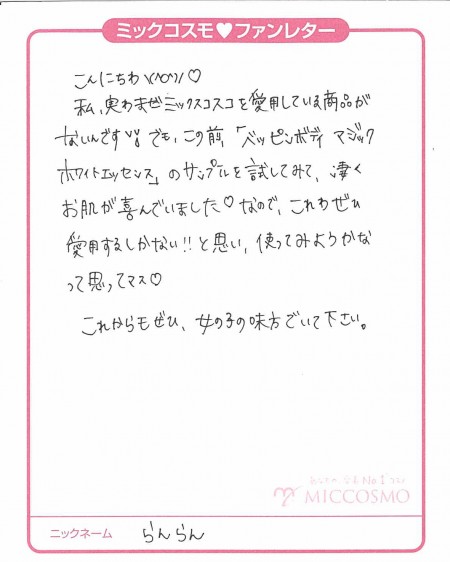 ミックコスモ♥ファンレター
こんにちわ\(^o^)/♡
私、実わまだミックスコスコを愛用している商品が
ないんです でも、この前、「ベッピンボディ マジック
ホワイトエッセンス」のサンプルを試してみて、凄く
お肌が喜んでいました♡なので、これわぜひ
愛用するしかない!!と思い、使ってみようかな
って思ってマス♡
これからもぜひ、女の子の味方でいて下さい。
MICCOSMO
ニックネーム らんらん